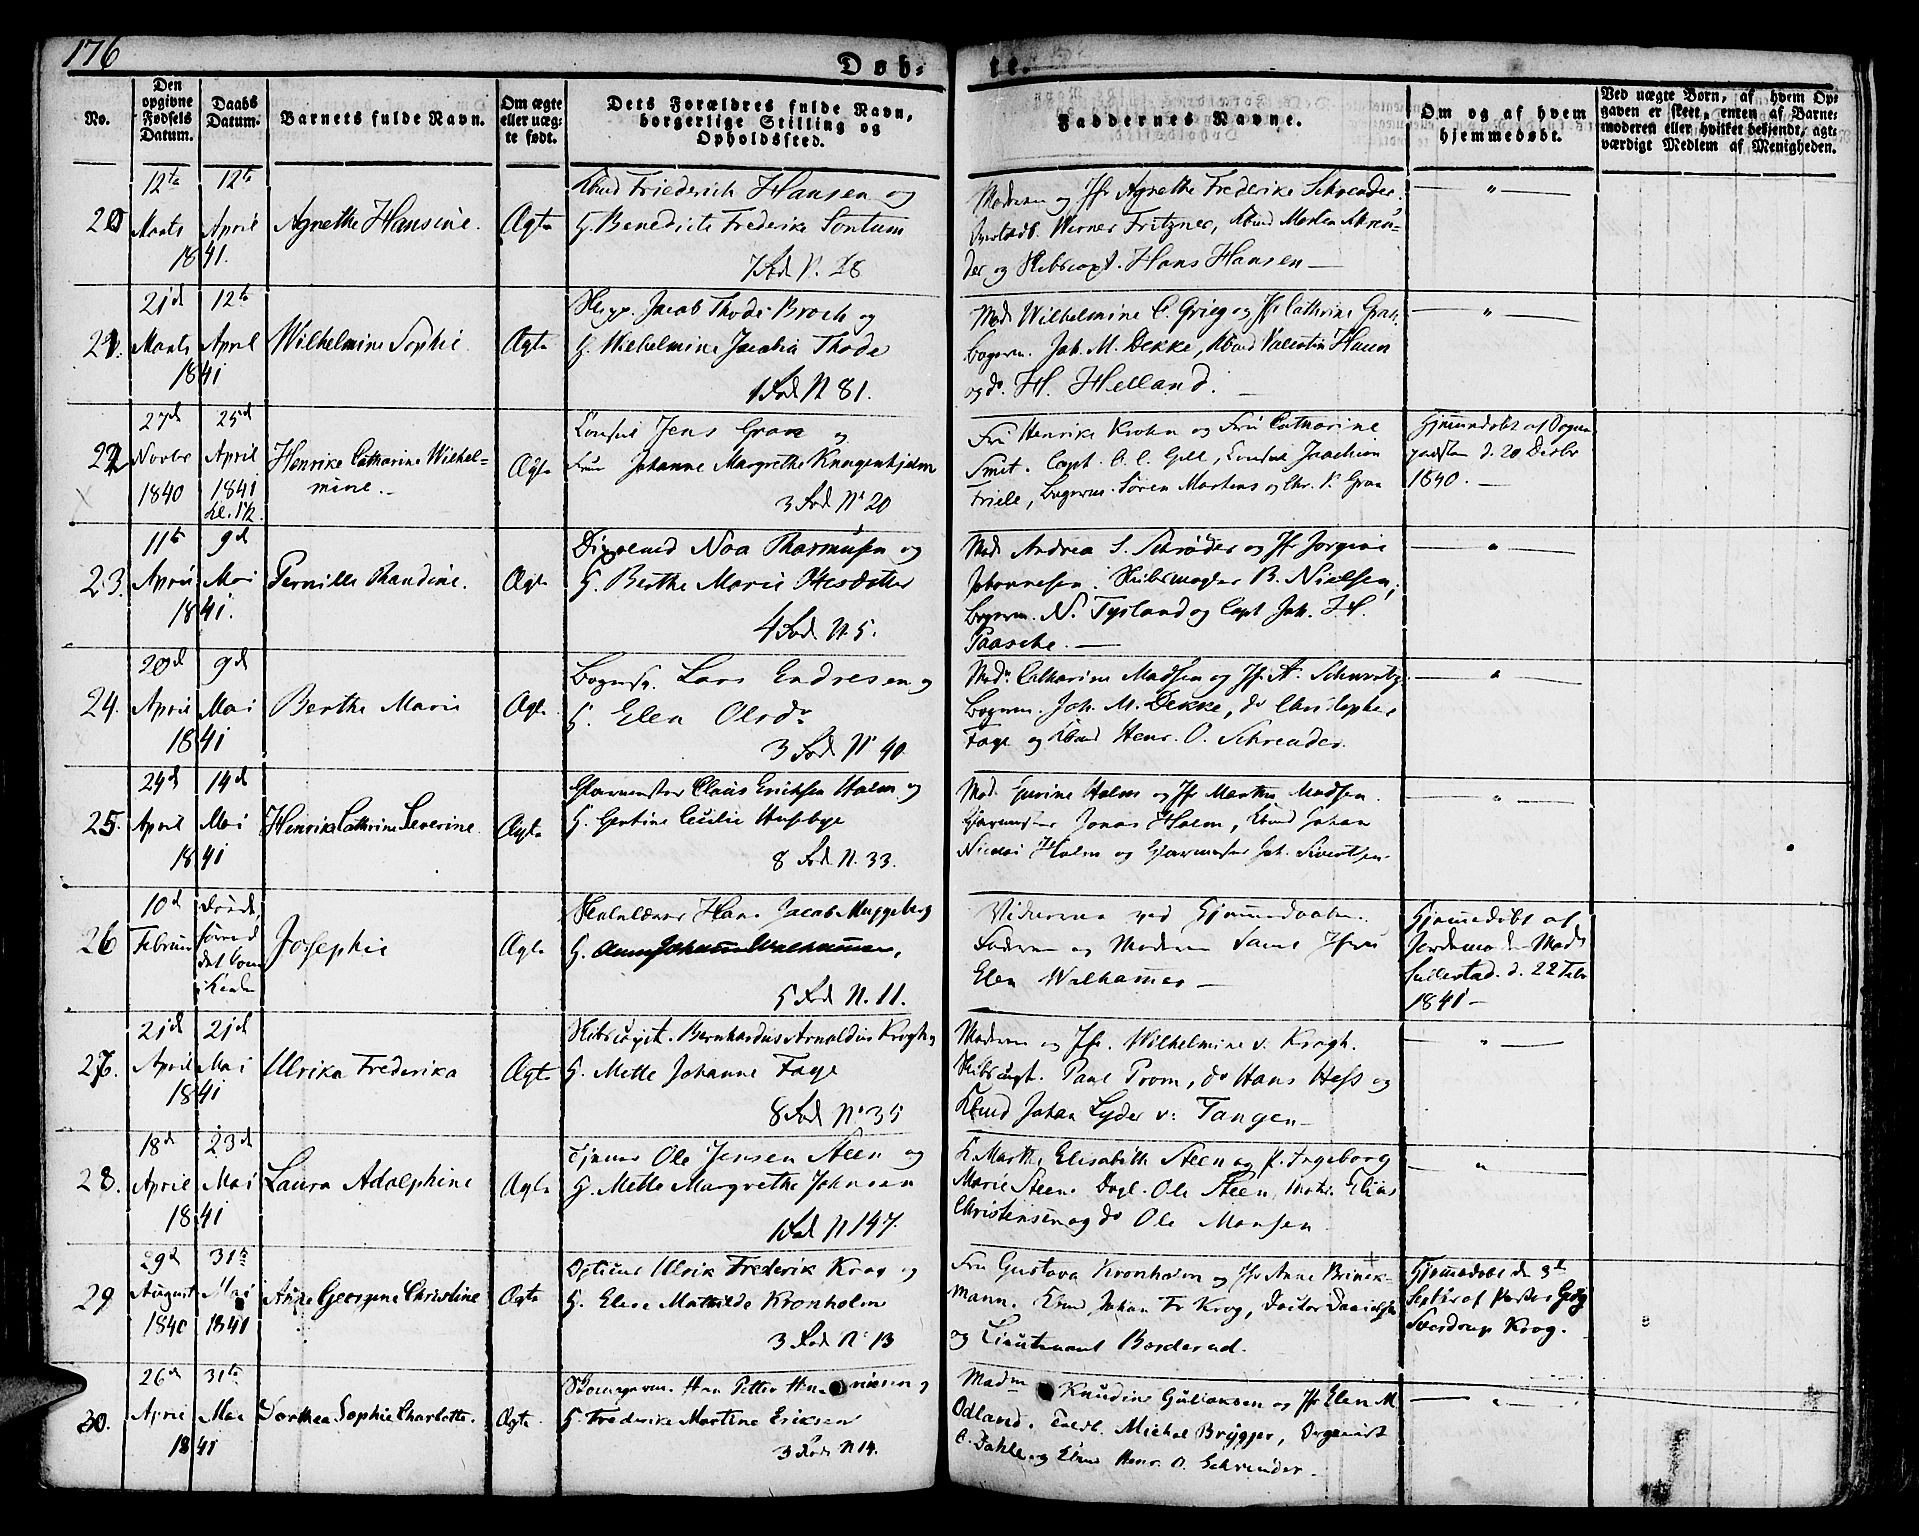 176
Døb-
te.
No.
Den
opgivne
Fødsels
Datum.
Daabs
Datum.
Barnets fulde Navn.
Om ægte
eller uæg-
te født.
Dets Forældres fulde Navn,
borgerlige Stilling og
Opholdssted.
Faddernes Navne.
Om og af hvem
hjemmedøbt.
Ved uægte Børn, af hvem Op-
gaven er skeet, enten af Barne-
moderen eller hvilket bekjendt, agt-
værdigt Medlem af Menigheden.
20
12te
Marts
1841.
12te
April
Agnethe Hansine.
Ægte
Friederich Hansen og
H. Benedicte Frederike Sontum
7 Rod N. 28
Moderen og Jfr Agnethe Frederike Schreuder
Werner Fritzner, Morten Schreu-
der og Skibscapt. Hans Hansen —
"
21.
21d
Marts
1841
12te
April
Wilhelmine Sophie
Ægte
Jacob Thode Broch og
H. Wilhelmine Jacobia Thode
1 Rod N 81.
Mad. Wilhelmine C. Grieg og Jfr Cathrine Grah.
Bogerm. Joh. M. Dekke, Valentin Haun
og do H. Helland.
"
22
27d
Novbr
1840
25d
April
1841
Henrike Catharine Wilhel-
mine.
Ægte
Consul Jens Gran og
Frue Johanne Margrethe Knagenhjelm
3 Rod N 20
Fru Henrike Krohn og Fru Catharine
Smit. Capt. C. C. Gell, Consul Joachim
Friele, Søren Martens og Chr. K. Gran
Hjemmedøbt af Sogne
præsten d. 20 Decbr
1840. —
23.
11te
April
1841.
9d
Mai
Pernille Randine.
Ægte
Noa Rasmusen og
H. Berthe Marie
4 Rod N. 5.
Mad. Andrea S. Schrøder og Jfr Jorgine
Johannesen. Skibsmægler B. Nielsen,
Bogerm. N. Tysland og Capt. Joh. H.
Paasche. —
"
24.
20d
April
1841
9d
Mai
Berthe Marie
Ægte
Lars Endresen og
H. Elen Olsdr
3 Rod N 40
Mad. Catharine Madsen og Jfr A.
Bogerm. Joh. M. Dekke, do Christopher
Fage og Henr. O. Schreuder.
"
25.
24d
April
1841
14d
Mai
Henrike Cathrine Severine
Ægte
Glarmester Claus Ericksen Holm og
H. Gertine Cecilie Husebye
8 Rod N. 33.
Mad. Gurine Holm og Jfr Marthe Madsen.
Glarmester Jonas Holm, Johan
Nicolai Holm og Glarmester Joh. Sivertsen
"
26
10d
Februar
Døde,
førend
det kom
i Kirken
Josephie
Ægte
Skolelærer Hans Jacob Muggeborg
H. Anne Johanne Walhammer,
5 Rod N. 11.
Vidnerne ved Hjemmedaaben.
Faderen og Moderen samt Jfr
Elen Walhammer —
Hjemmedøbt af
Jordemoder Mad.
d. 22 Febr
1841 —
27.
21d
April
1841
21d
Mai
Ulrika Frederika
Ægte
Skibscapt. Bernhardus Arnoldus Krogh og
H. Mette Johanne Fage
8 Rod N 35
Moderen og Jfr. Wilhelmine v. Krogh.
Skibscapt. Paul Prom, do Hans Hess og
Johan Lyder v: Tangen —
"
28.
18d
April
1841
23d
Mai
Laura Adolphine
Ægte
Tjener Ole Jensen Steen og
H. Mette Margrethe Johnsen
1 Rod N 147.
K. Marthe Elisabeth Steen og P. Ingeborg
Marie Steen. Dagl. Ole Steen, Matr. Elias
Christensen og do Ole Monsen.
"
29
29d
August
1840
31te
Mai
1841
Anne Georgine Christine
Ægte
Opticus Ulrik Frederik Krog og
H. Elise Mathilde Kronholm
3 Rod N 13
Fru Gustava Kronholm og Jfr Anne Brinck-
mann. Johan Fr Krog, Doctor Danielsen
og Lieutenant Borderud.
Hjemmedøbt den 3d
Septbr af Pastor Georg
Sverdrup Krog.
30.
26d
April
1841
31te
Mai
Dorthea Sophie Charlotte.
Ægte.
Petter og
H. Frederike Martine Eriksen
3 Rod N 14.
Madm Knudine Gullaksen og Jfr Elen M.
Odland. Michel Brygger, Organist
C. Dahle og Henr. O. Schreuder —
"